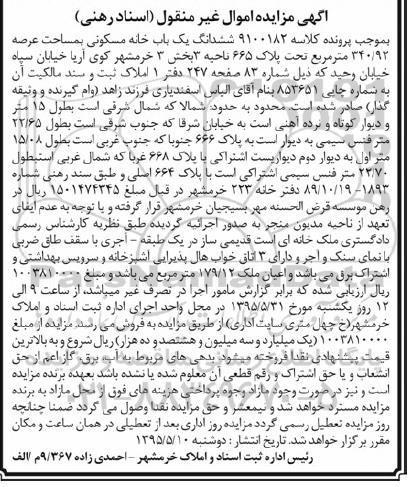 آگهی مزایده اموال غیر منقول (اسناد رهنی)
بموجب پرونده کلاسه ۹۱۰۰۱۸۲ ششدانگ یک باب خانه مسکونی بمساحت عرصه
۳۴۰/۹۲ مترمربع تحت پلاک ۶۶۵ ناحیه ۳بخش ۳ خرمشهر کوی آریا خیابان سپاه
خیابان وحید که ذیل شماره ۸۳ صفحه ۲۴۷ دفتر ۱ املاک ثبت و سند مالکیت آن
به شماره چاپی ۸۵۳۶۵۱ بنام آقای الیاس اسفندیاری فرزند زاهد (وام گیرنده و وثیقه
گذار) صادر شده است. محدود به حدود: شمالا که شمال شرقی است بطول ۱۵ متر
و دیوار کوتاه و نرده آهنی است به خیابان شرقا که جنوب شرقی است بطول ۲۲/۶۵
متر فنس سیمی به دیوار است به پلاک ۶۶۶ جنوبا که جنوب غربی است بطول ۱۵/۰۸
متر اول به دیوار دوم دیواریست اشتراکی با پلاک ۶۶۸ غربا که شمال غربی استبطول
۲۳/۷۰ متر فنس سیمی اشتراکی است با پلاک ۶۶۴ اصلی و طبق سند رهنی شماره
۱۸۹۳- ۸۹/۱۰/۱۹ دفتر خانه ۲۲۳ خرمشهر در قبال مبلغ ۱۵۰۱۴۷۴۳۴۵ ریال در
رهن موسسه قرض الحسنه مهر بسیجیان خرمشهر قرار گرفته و با توجه به عدم ایفای
تعهد از ناحیه مدیون منجر به صدور اجرائیه گردیده طبق نظریه کارشناس رسمی
دادگستری ملک خانه ای است قدیمی ساز در یک طبقه - آجری با سقف طاق ضربی
با نمای سنگ و آجر و دارای ۳ اتاق خواب هال پذیرایی آشپزخانه و سرویس بهداشتی و
اشتراک برق می باشد و اعیان ملک ۱۷۹/۱۲ مترمربع می باشد و مبلغ ۱۰۰۳۸۱۰۰۰۰
ریال ارزیابی شده که برابر گزارش مامور اجرا در تصرف غیر میباشد، از ساعت ۹ الی
۱۲ روز یکشنبه مورخ ۱۳۹۵/۵/۳۱ در محل واحد اجرای اداره ثبت اسناد و املاک
خرمشهر(خ چهل متری سایت اداری) از طریق مزایده به فروش می رسد مزایده از مبلغ
۱۰۰۳۸۱۰۰۰۰ (یک میلیارد و سه میلیون و هشتصد و ده هزار) ریال شروع و به بالاترین
قیمت پیشنهادی نقدا فروخته میشود بدهی های مربوط به آب برق، گاز اعم از حق
انشعاب و یا حق اشتراک و رقم قطعی آن معلوم شده یا نشده باشد بعهده برنده مزایده
است و نیز در صورت وجود مازاد وجوه پرداختی هزینه های فوق از محل مازاد به برنده
مزایده مسترد خواهد شد و نیمعشر و حق مزایده نقدا وصول می گردد ضمنا چنانچه
روز مزایده تعطیل رسمی گردد مزایده روز اداری بعد از تعطیلی در همان ساعت و مکان
مقرر برگزار خواهد شد. تاریخ انتشار : دوشنبه ۱۳۹۵/۵/۱۰
رئیس اداره ثبت اسناد و املاک خرمشهر - احمدی زاده ۹/۳۶۷م /الف